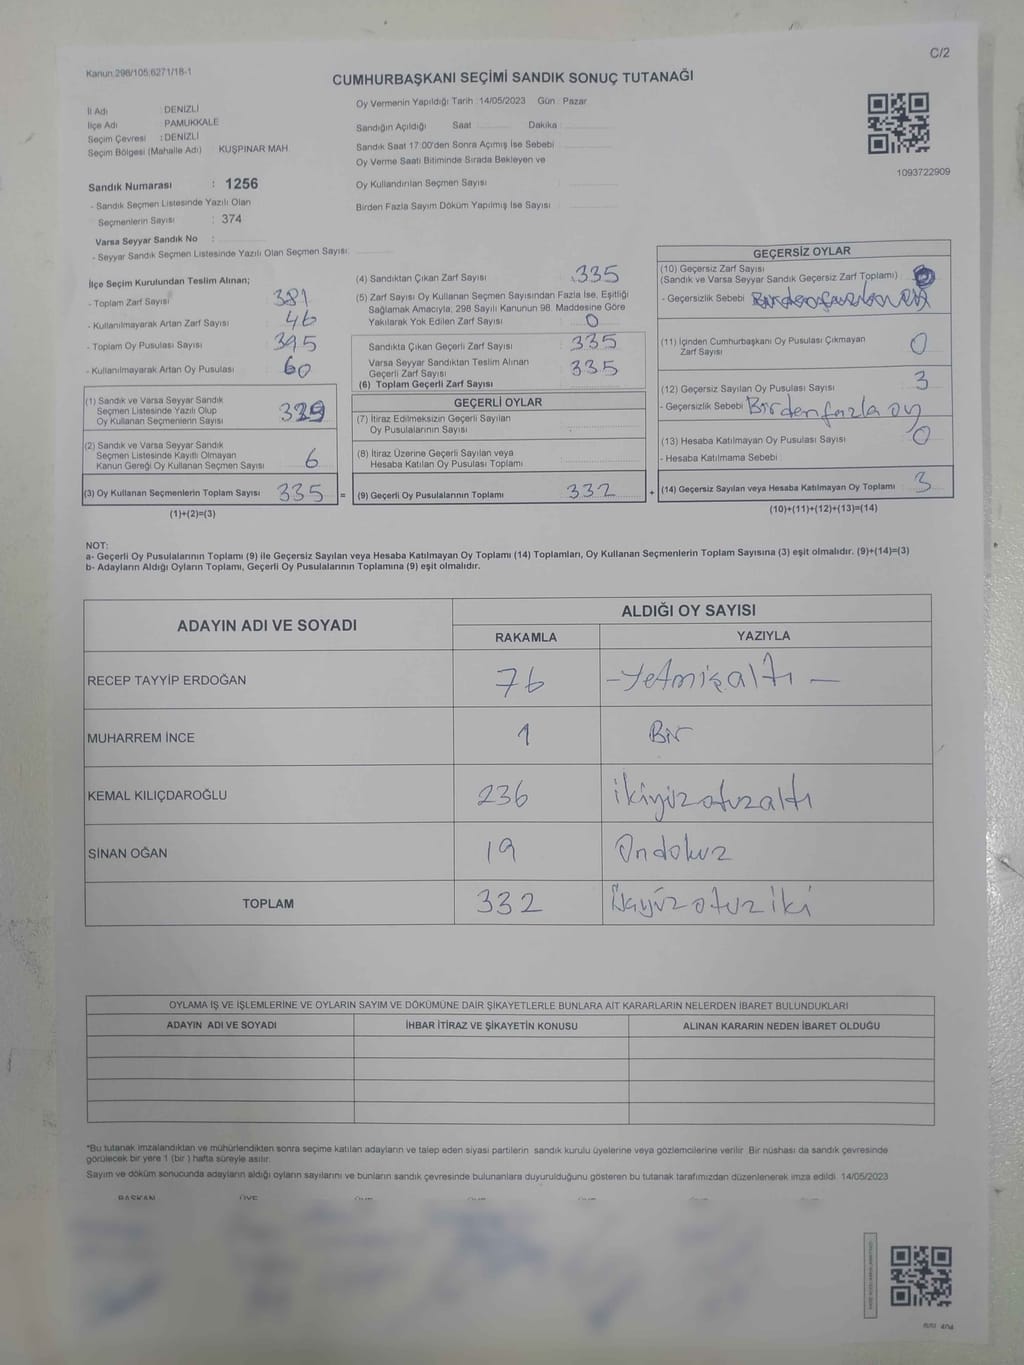 C/2
Kanun:298/105;6271/18-1
CUMHURBAŞKANI SEÇİMİ SANDIK SONUÇ TUTANAĞI
İl Adı : DENİZLİ
İlçe Adı : PAMUKKALE
Seçim Çevresi : DENİZLİ
Seçim Bölgesi (Mahalle Adı) : KUŞPINAR MAH.
Oy Vermenin Yapıldığı Tarih : 14/05/2023 Gün : Pazar
Sandığın Açıldığı Saat Dakika :
Sandık Saat 17:00'den Sonra Açımış İse Sebebi
Oy Verme Saati Bitiminde Sırada Bekleyen ve
Oy Kullandırılan Seçmen Sayısı :
Birden Fazla Sayım Döküm Yapılmış İse Sayısı :
1093722909
Sandık Numarası : 1256
- Sandık Seçmen Listesinde Yazılı Olan
Seçmenlerin Sayısı : 374
Varsa Seyyar Sandık No :
- Seyyar Sandık Seçmen Listesinde Yazılı Olan Seçmen Sayısı:
İlçe Seçim Kurulundan Teslim Alınan;
- Toplam Zarf Sayısı 381
- Kullanılmayarak Artan Zarf Sayısı : 46
- Toplam Oy Pusulası Sayısı : 395
- Kullanılmayarak Artan Oy Pusulası : 60
(1) Sandık ve Varsa Seyyar Sandık
Seçmen Listesinde Yazılı Olup
Oy Kullanan Seçmenlerin Sayısı : 329
(2) Sandık ve Varsa Seyyar Sandık
Seçmen Listesinde Kayıtlı Olmayan
Kanun Gereği Oy Kullanan Seçmen Sayısı : 6
(3) Oy Kullanan Seçmenlerin Toplam Sayısı : 335 =
(1)+(2)=(3)
(4) Sandıktan Çıkan Zarf Sayısı : 335
(5) Zarf Sayısı Oy Kullanan Seçmen Sayısından Fazla İse, Eşitliği
Sağlamak Amacıyla, 298 Sayılı Kanunun 98. Maddesine Göre
Yakılarak Yok Edilen Zarf Sayısı : 0
Sandıkta Çıkan Geçerli Zarf Sayısı : 335
Varsa Seyyar Sandıktan Teslim Alınan
Geçerli Zarf Sayısı : 335
(6) Toplam Geçerli Zarf Sayısı
GEÇERLİ OYLAR
(7) İtiraz Edilmeksizin Geçerli Sayılan
Oy Pusulalarının Sayısı :
(8) İtiraz Üzerine Geçerli Sayılan veya
Hesaba Katılan Oy Pusulası Toplamı :
(9) Geçerli Oy Pusulalarının Toplamı : 332 +
GEÇERSİZ OYLAR
(10) Geçersiz Zarf Sayısı
(Sandık ve Varsa Seyyar Sandık Geçersiz Zarf Toplamı) :
- Geçersizlik Sebebi : Birden fazla oy
(11) İçinden Cumhurbaşkanı Oy Pusulası Çıkmayan
Zarf Sayısı : 0
(12) Geçersiz Sayılan Oy Pusulası Sayısı : 3
- Geçersizlik Sebebi : Birden fazla oy
(13) Hesaba Katılmayan Oy Pusulası Sayısı : 0
- Hesaba Katılmama Sebebi :
(14) Geçersiz Sayılan veya Hesaba Katılmayan Oy Toplamı : 3
(10)+(11)+(12)+(13)=(14)
NOT:
a- Geçerli Oy Pusulalarının Toplamı (9) ile Geçersiz Sayılan veya Hesaba Katılmayan Oy Toplamı (14) Toplamları, Oy Kullanan Seçmenlerin Toplam Sayısına (3) eşit olmalıdır. (9)+(14)=(3)
b- Adayların Aldığı Oyların Toplamı, Geçerli Oy Pusulalarının Toplamına (9) eşit olmalıdır.
ADAYIN ADI VE SOYADI ALDIĞI OY SAYISI
RAKAMLA YAZIYLA
RECEP TAYYİP ERDOĞAN 76 -Yetmişaltı-
MUHARREM İNCE 1 Bir
KEMAL KILIÇDAROĞLU 236 ikiyüzotuzaltı
SİNAN OĞAN 19 Ondokuz
TOPLAM 332 üçyüzotuziki
OYLAMA İŞ VE İŞLEMLERİNE VE OYLARIN SAYIM VE DÖKÜMÜNE DAİR ŞİKAYETLERLE BUNLARA AİT KARARLARIN NELERDEN İBARET BULUNDUKLARI
ADAYIN ADI VE SOYADI İHBAR İTİRAZ VE ŞİKAYETİN KONUSU ALINAN KARARIN NEDEN İBARET OLDUĞU
*Bu tutanak imzalandıktan ve mühürlendikten sonra seçime katılan adayların ve talep eden siyasi partilerin sandık kurulu üyelerine veya gözlemcilerine verilir. Bir nüshası da sandık çevresinde
görülecek bir yere 1 (bir ) hafta süreyle asılır.
Sayım ve döküm sonucunda adayların aldığı oyların sayılarını ve bunların sandık çevresinde bulunanlara duyurulduğunu gösteren bu tutanak tarafımızdan düzenlenerek imza edildi. 14/05/2023
BAŞKAN ÜYE ÜYE ÜYE ÜYE ÜYE